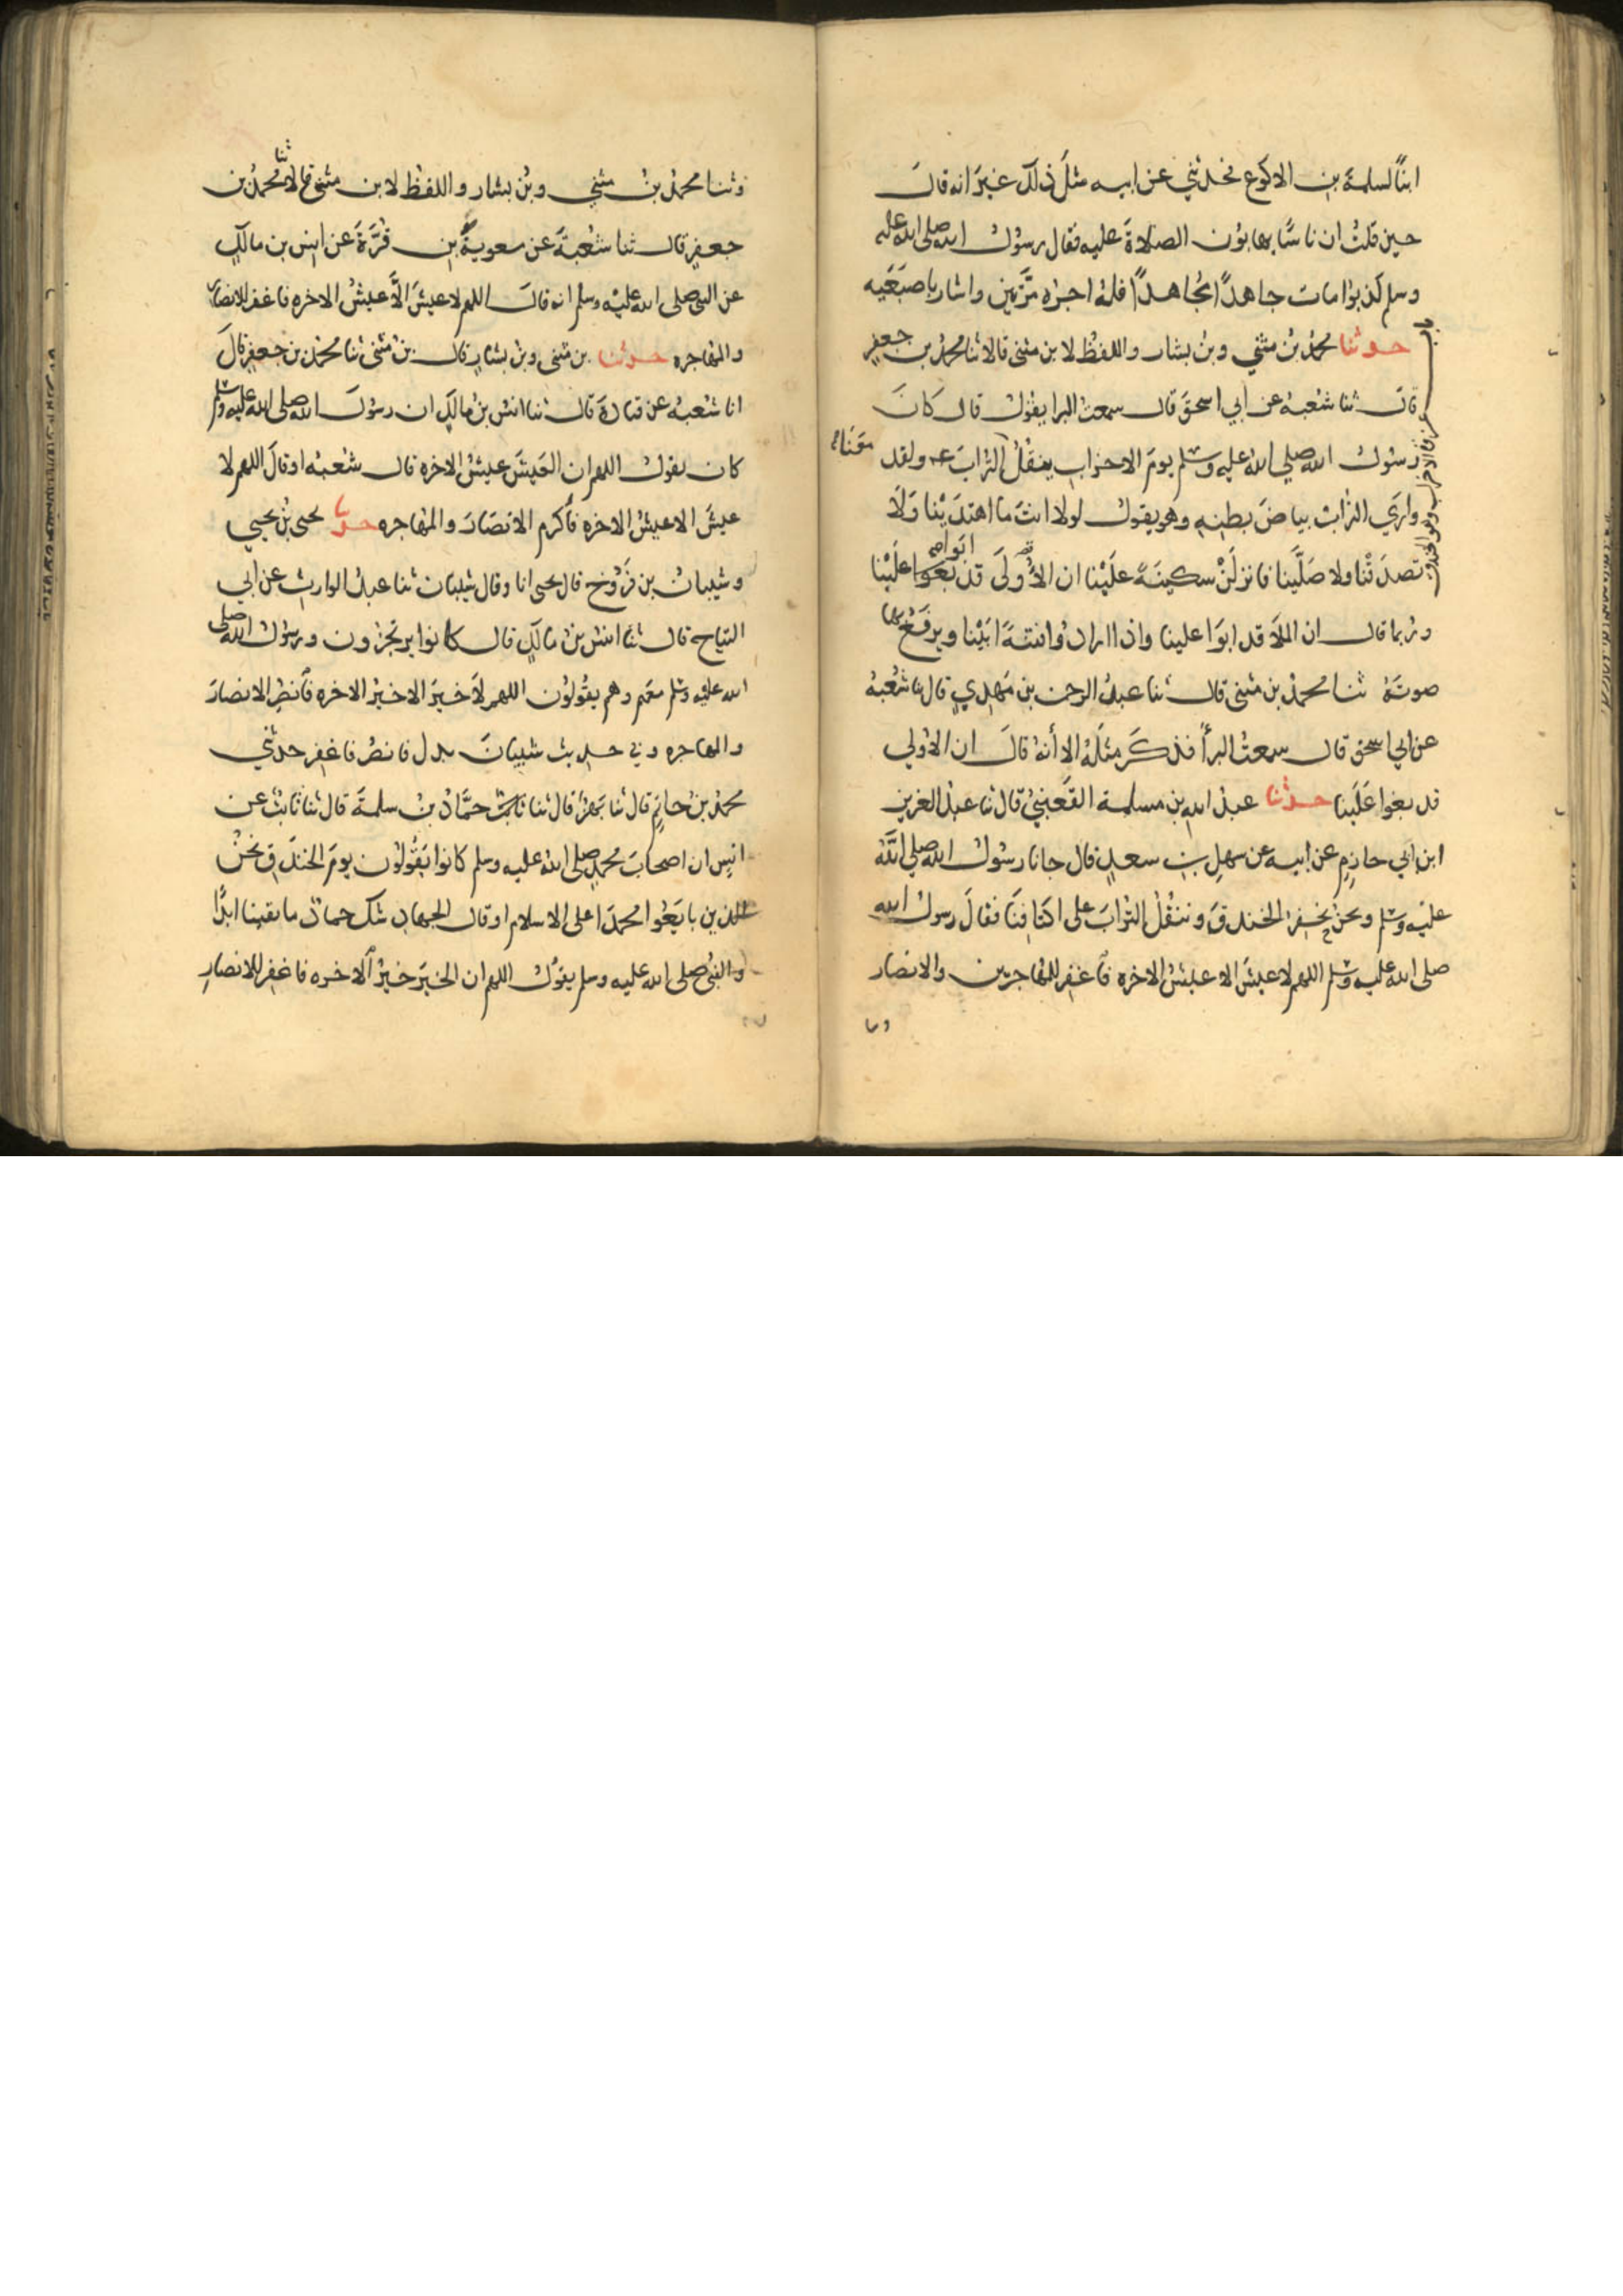 ابنًا لسلمة بن الاكوع فحدثني عن ابيه مثل ذلك غير انه قال
حين قلت ان ناسًا يهابون الصلاة عليه فقال رسول الله صلى الله عليه
وسلم كذبوا مات جاهدًا مجاهدًا فله اجره مرتين واشار باصبعيه
حدثنا محمد بن مثني وبن بشار واللفظ لابن مثنى قالا ثنا محمد بن جعفر
قال ثنا شعبة عن ابي اسحق قال سمعت البرا يقول قال كان
رسول الله صلي الله عليه وسلم يوم الاحزاب ينقل التراب ولقد
معناه
واري التراب بياض بطنه وهو يقول لولا انت ما اهتدينا ولا
تصدقنا ولا صلينا فانزلن سكينة علينا ان الاولى قد بغوا علينا
ابوا صح
وربما قال ان الملا قد ابوا علينا واذا ارادوا فتنة ابينا ويرفع بها
صوته ثنا محمد بن مثنى قال ثنا عبد الرحمن بن مهدي قال نا شعبة
عن ابي اسحق قال سمعت البرأ فذكر مثله الا أنه قال ان الاولي
قد بغوا علينا حدثنا عبد الله بن مسلمة القعنبي قال ثنا عبد العزيز
ابن ابي حازم عن ابيه عن سهل بن سعد قال جانا رسول الله صلي الله
عليه وسلم ونحن نحفر الخندق وننقل التراب على اكتافنا فقال رسول الله
صلى الله عليه وسلم اللهم لا عيش الا عيش الاخره فاغفر للمهاجرين والانصار
وثنا
باب غزوة الاحزاب وهو الخندق
وثنا محمد بن مثني وبن بشار واللفظ لابن مثنى قالا ثنا محمد بن
جعفر قال ثنا شعبة عن معوية بن قرة عن انس بن مالك
عن النبي صلى الله عليه وسلم انه قال اللهم لا عيش الا عيش الاخره فاغفر للانصار
والمهاجره حدثنا بن مثنى وبن بشار قال بن مثنى ثنا محمد بن جعفر قال
انا شعبه عن قتادة قال ثنا انس بن مالك ان رسول الله صلى الله عليه وسلم
كان يقول اللهم ان العيش عيش الاخره قال شعبه او قال اللهم لا
عيش الا عيش الاخره فأكرم الانصار والمهاجره حدثنا يحيى بن يحيي
وشيبان بن فروخ قال يحيى انا وقال شيبان ثنا عبد الوارث عن ابي
التياح قال ثنا انس بن مالك قال كانوا يرتجزون ورسول الله صلى
الله عليه وسلم معهم وهم يقولون اللهم لا خير الا خير الاخره فأنصر الانصار
والمهاجره وفي حديث شيبان بدل فانصر فاغفر حدثني
محمد بن حاتم قال ثنا بهز قال ثنا حماد بن سلمة قال ثنا ثابت عن
انس ان اصحاب محمد صلى الله عليه وسلم كانوا يقولون يوم الخندق نحن
الذين بايعوا محمدا على الاسلام او قال الجهاد شك حماد ما بقينا ابدًا
والنبي صلى الله عليه وسلم يقول اللهم ان الخير خير الاخره فاغفر للانصار